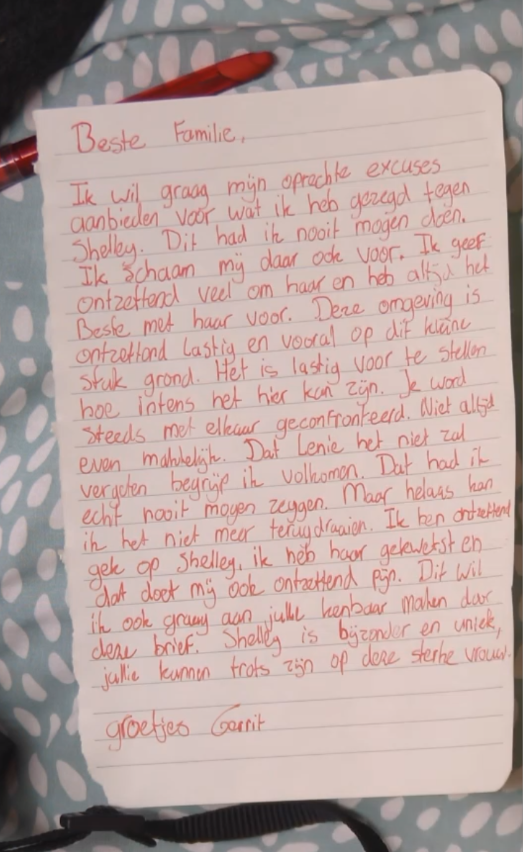 Beste Familie,
Ik wil graag mijn oprechte excuses
aanbieden voor wat ik heb gezegd tegen
Shelley. Dit had ik nooit mogen doen.
Ik schaam mij daar ook voor. Ik geef
ontzettend veel om haar en heb altijd het
Beste met haar voor. Deze omgeving is
ontzettend lastig en vooral op dit kleine
stuk grond. Het is lastig voor te stellen
hoe intens het hier kan zijn. Je word
steeds met elkaar geconfronteerd. Niet altijd
even makkelijk. Dat Lenie het niet zal
vergeten begrijp ik volkomen. Dat had ik
echt nooit mogen zeggen. Maar helaas kan
ik het niet meer terugdraaien. Ik ben ontzettend
gek op Shelley, ik heb haar gekwetst en
dat doet mij ook ontzettend pijn. Dit wil
ik ook graag aan jullie kenbaar maken door
deze brief. Shelley is bijzonder en uniek,
jullie kunnen trots zijn op deze sterke vrouw.
groetjes Gerrit